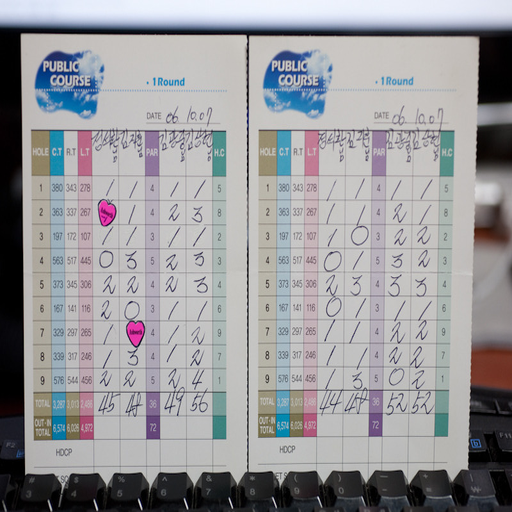 PUBLIC
COURSE
• 1 Round
DATE 06. 10. 07
HOLE C.T R.T L.T PAR H.C
1 380 343 278 / / 4 / / 5
2 363 337 267 / 4 2 3 8
3 197 172 107 / / 3 / / 2
4 563 517 445 0 3 5 2 3 3
5 373 345 306 2 2 4 2 3 4
6 167 141 116 2 0 3 / / 6
7 329 297 265 / 4 / 2 9
8 339 317 246 / 3 4 / 2 7
9 576 544 456 2 2 5 2 4 1
TOTAL 3,287 3,013 2,486 45 36 49 56
OUT-IN TOTAL 6,574 6,026 4,972 72
HDCP
PUBLIC
COURSE
• 1 Round
DATE 06. 10. 07
HOLE C.T R.T L.T PAR H.C
1 380 343 278 / / 4 / / 5
2 363 337 267 / / 4 2 / 8
3 197 172 107 / 0 3 2 2 2
4 563 517 445 0 / 5 2 2 3
5 373 345 306 2 3 4 3 3 4
6 167 141 116 0 / 3 / / 6
7 329 297 265 / / 4 2 2 9
8 339 317 246 / / 4 2 2 7
9 576 544 456 / 3 5 0 2 1
TOTAL 3,287 3,013 2,486 44 36 52 52
OUT-IN TOTAL 6,574 6,026 4,972 72
HDCP